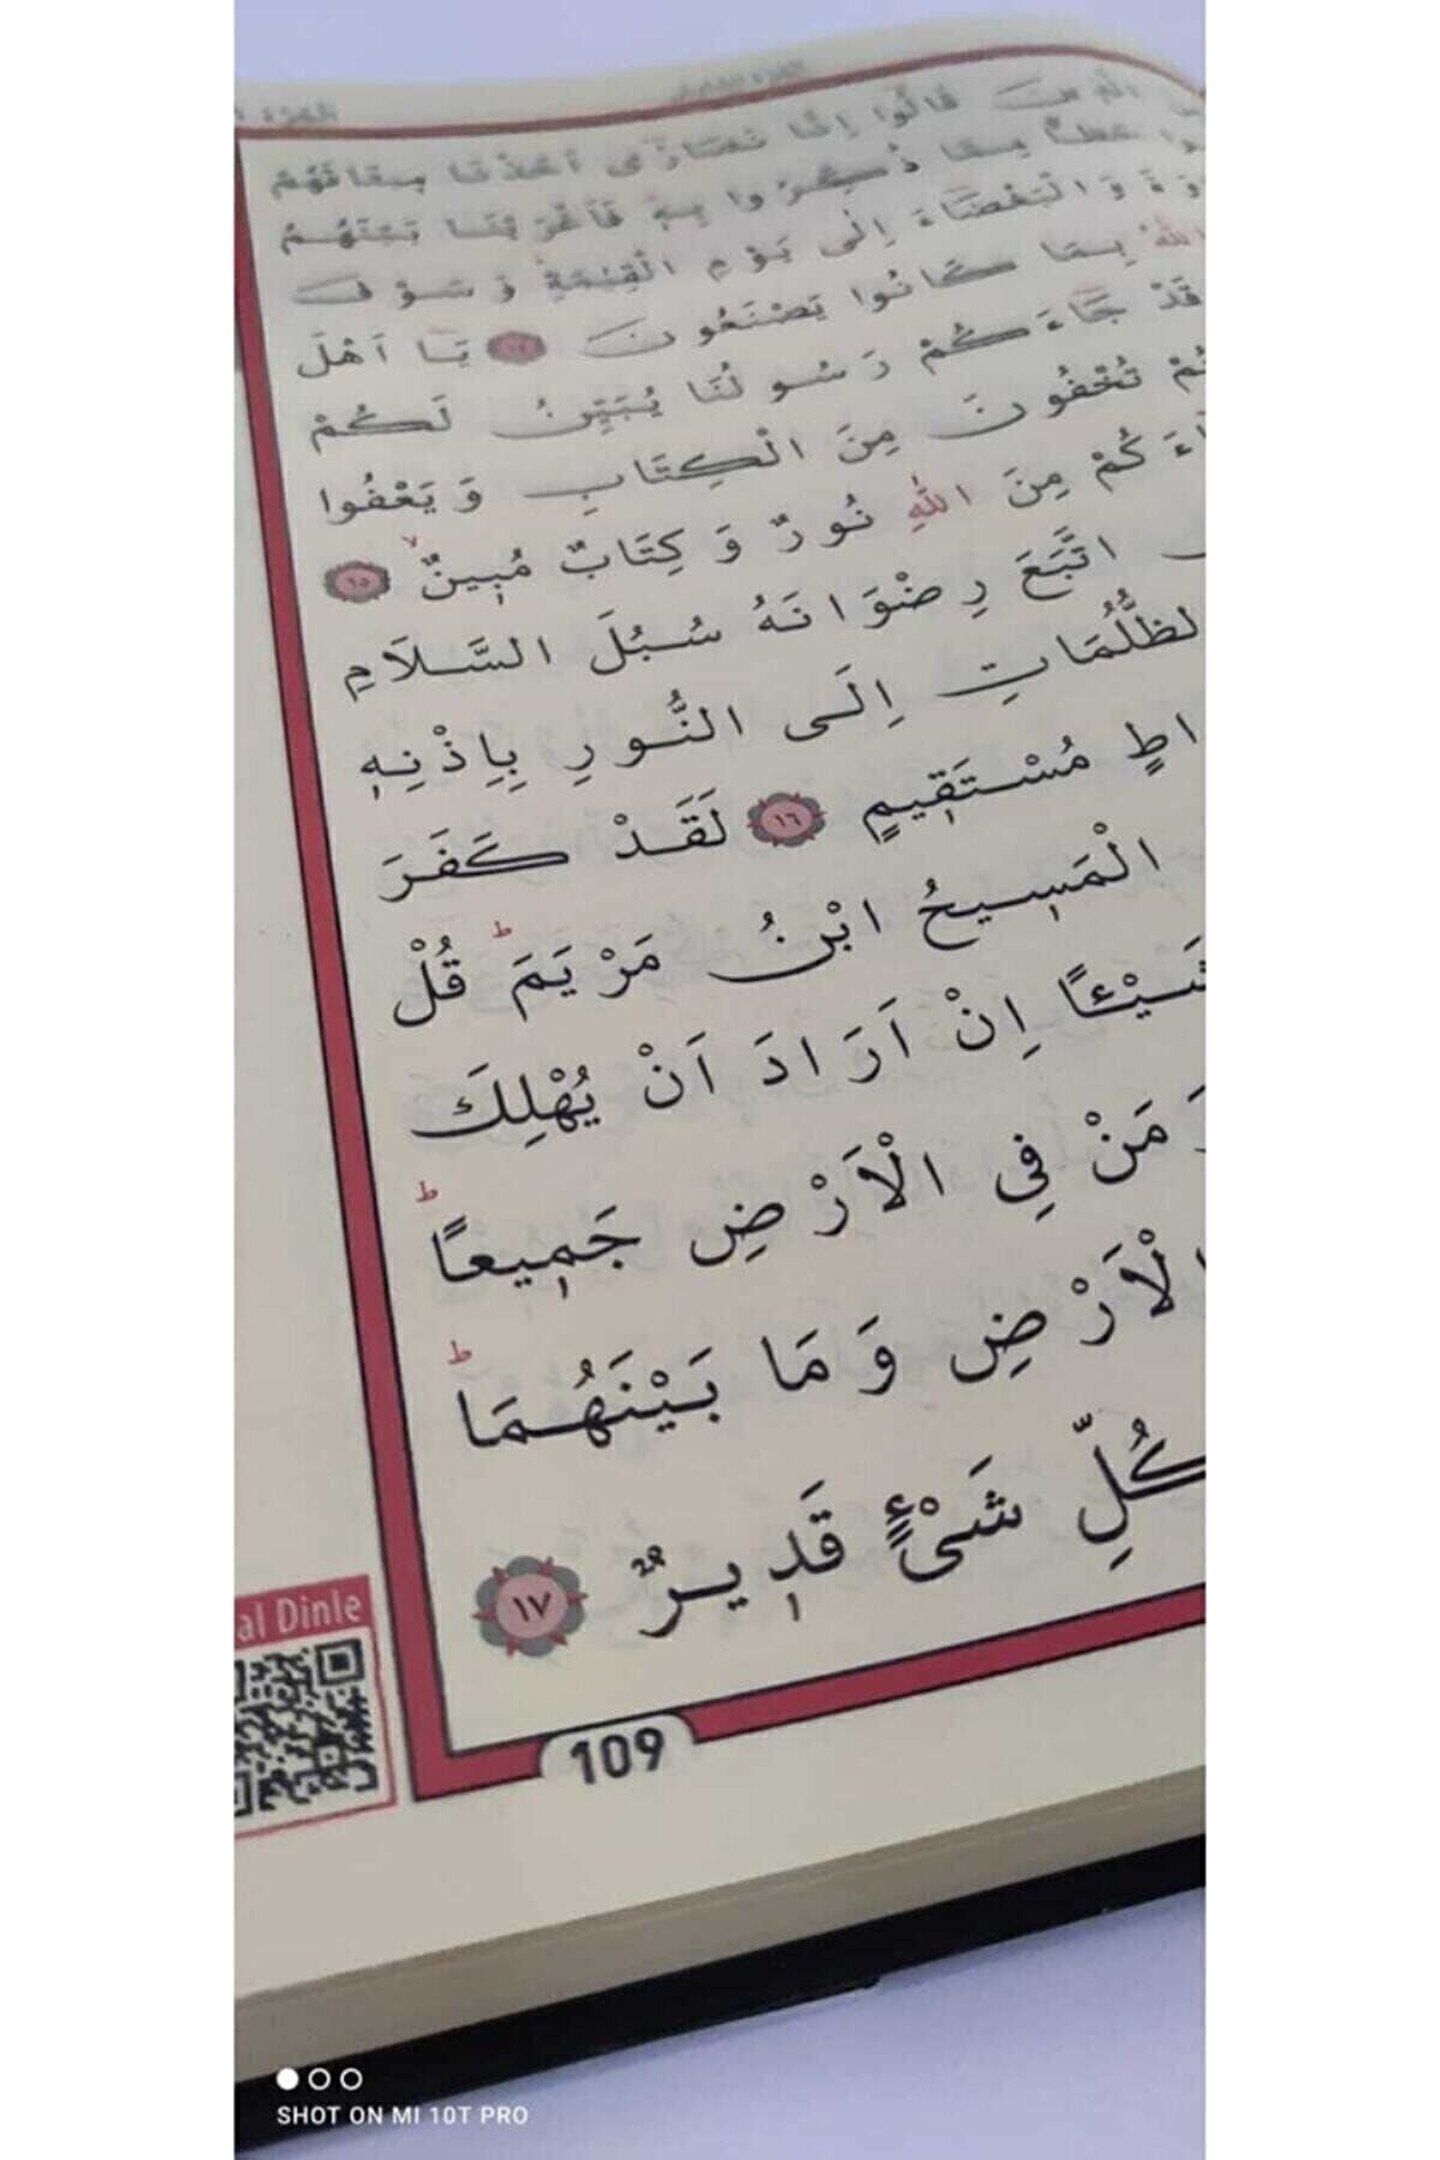 قَالُوا اِنَّا نَصَارٰى اَخَذْنَا مِيثَاقَهُمْ
حَظًّا مِمَّا ذُكِّرُوا بِهِ فَاَغْرَيْنَا بَيْنَهُمُ
وَالْبَغْضَاءَ اِلٰى يَوْمِ الْقِيٰمَةِ وَسَوْفَ
اللّٰهُ بِمَا كَانُوا يَصْنَعُونَ ١٤ يَا اَهْلَ
قَدْ جَاءَكُمْ رَسُولُنَا يُبَيِّنُ لَكُمْ
تُخْفُونَ مِنَ الْكِتَابِ وَيَعْفُوا
كُمْ مِنَ اللّٰهِ نُورٌ وَكِتَابٌ مُبٖينٌ ١٥
اتَّبَعَ رِضْوَانَهُ سُبُلَ السَّلَامِ
لظُّلُمَاتِ اِلَى النُّورِ بِاِذْنِهٖ
اطٍ مُسْتَقٖيمٍ ١٦ لَقَدْ كَفَرَ
الْمَسٖيحُ ابْنُ مَرْيَمَ قُلْ
شَيْـًٔا اِنْ اَرَادَ اَنْ يُهْلِكَ
مَنْ فِى الْاَرْضِ جَمٖيعًا
لْاَرْضِ وَمَا بَيْنَهُمَا
كُلِّ شَیْءٍ قَدٖيرٌ ١٧
al Dinle
109
SHOT ON MI 10T PRO